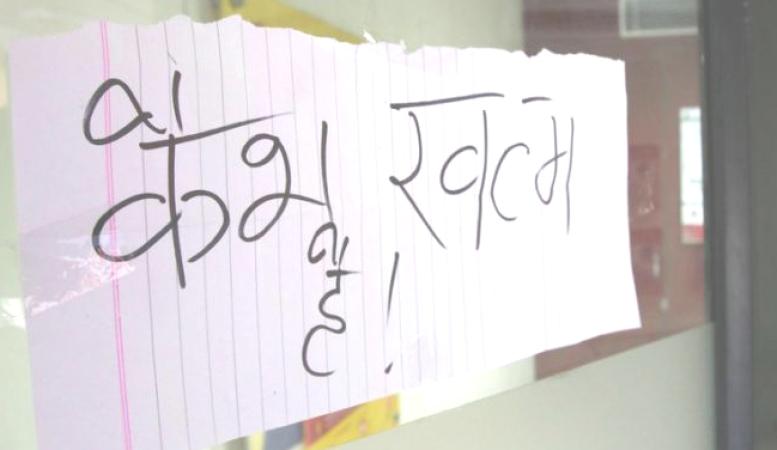 कैश खत्म
है!